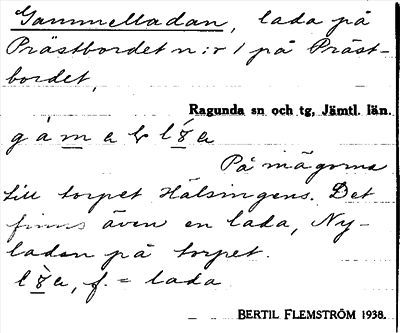 Gammelladan, lada på
Prästbordet n:r 1 på Präst-
bordet,
Ragunda sn och tg, Jämtl. län.
På mägorna
till torpet Hälsingens. Det
finns även en lada, Ny-
ladan på torpet.
f. = lada
BERTIL FLEMSTRÖM 1938.